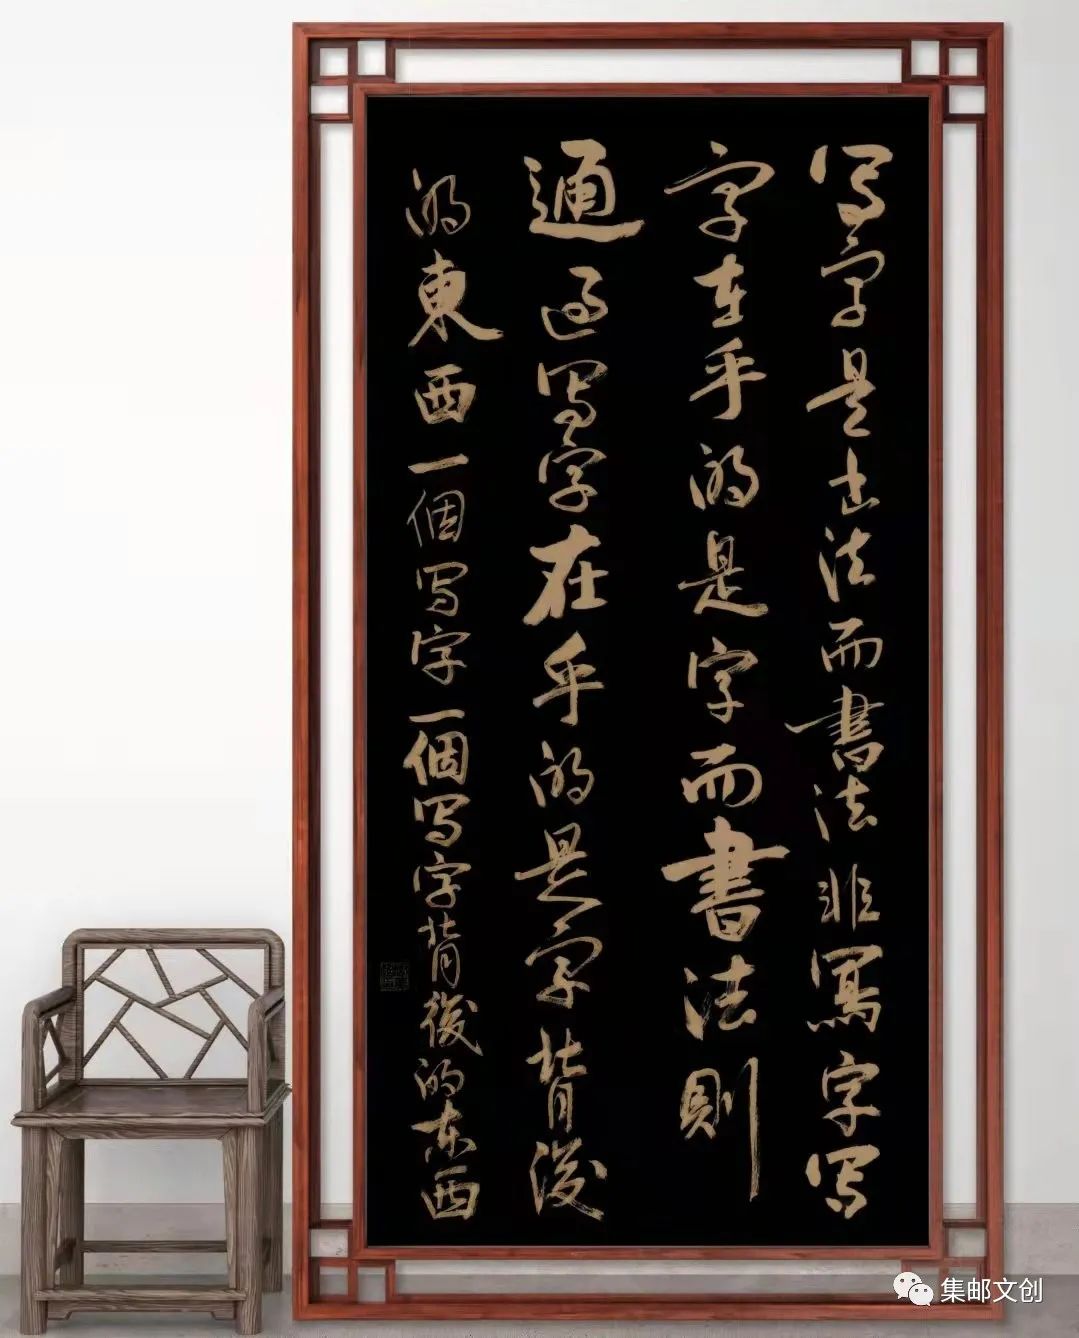 写字是書法而書法非寫字写
字在乎的是字而書法則
通過写字在乎的是字背後
的東西一個写字一個写字背後的东西
集邮文创